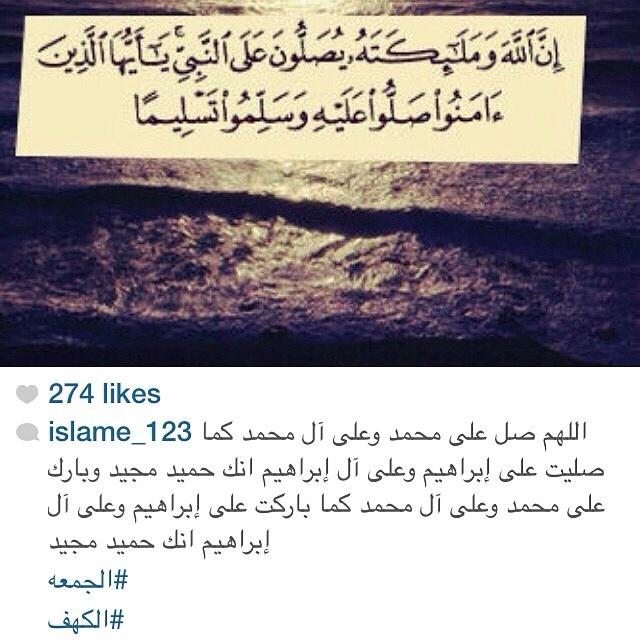 إِنَّ ٱللَّهَ وَمَلَٰٓئِكَتَهُۥ يُصَلُّونَ عَلَى ٱلنَّبِىِّ ۚ يَٰٓأَيُّهَا ٱلَّذِينَ
ءَامَنُوا۟ صَلُّوا۟ عَلَيْهِ وَسَلِّمُوا۟ تَسْلِيمًا
274 likes
islame_123 اللهم صل على محمد وعلى آل محمد كما
صليت على إبراهيم وعلى آل إبراهيم انك حميد مجيد وبارك
على محمد وعلى آل محمد كما باركت على إبراهيم وعلى آل
إبراهيم انك حميد مجيد
#الجمعه
#الكهف